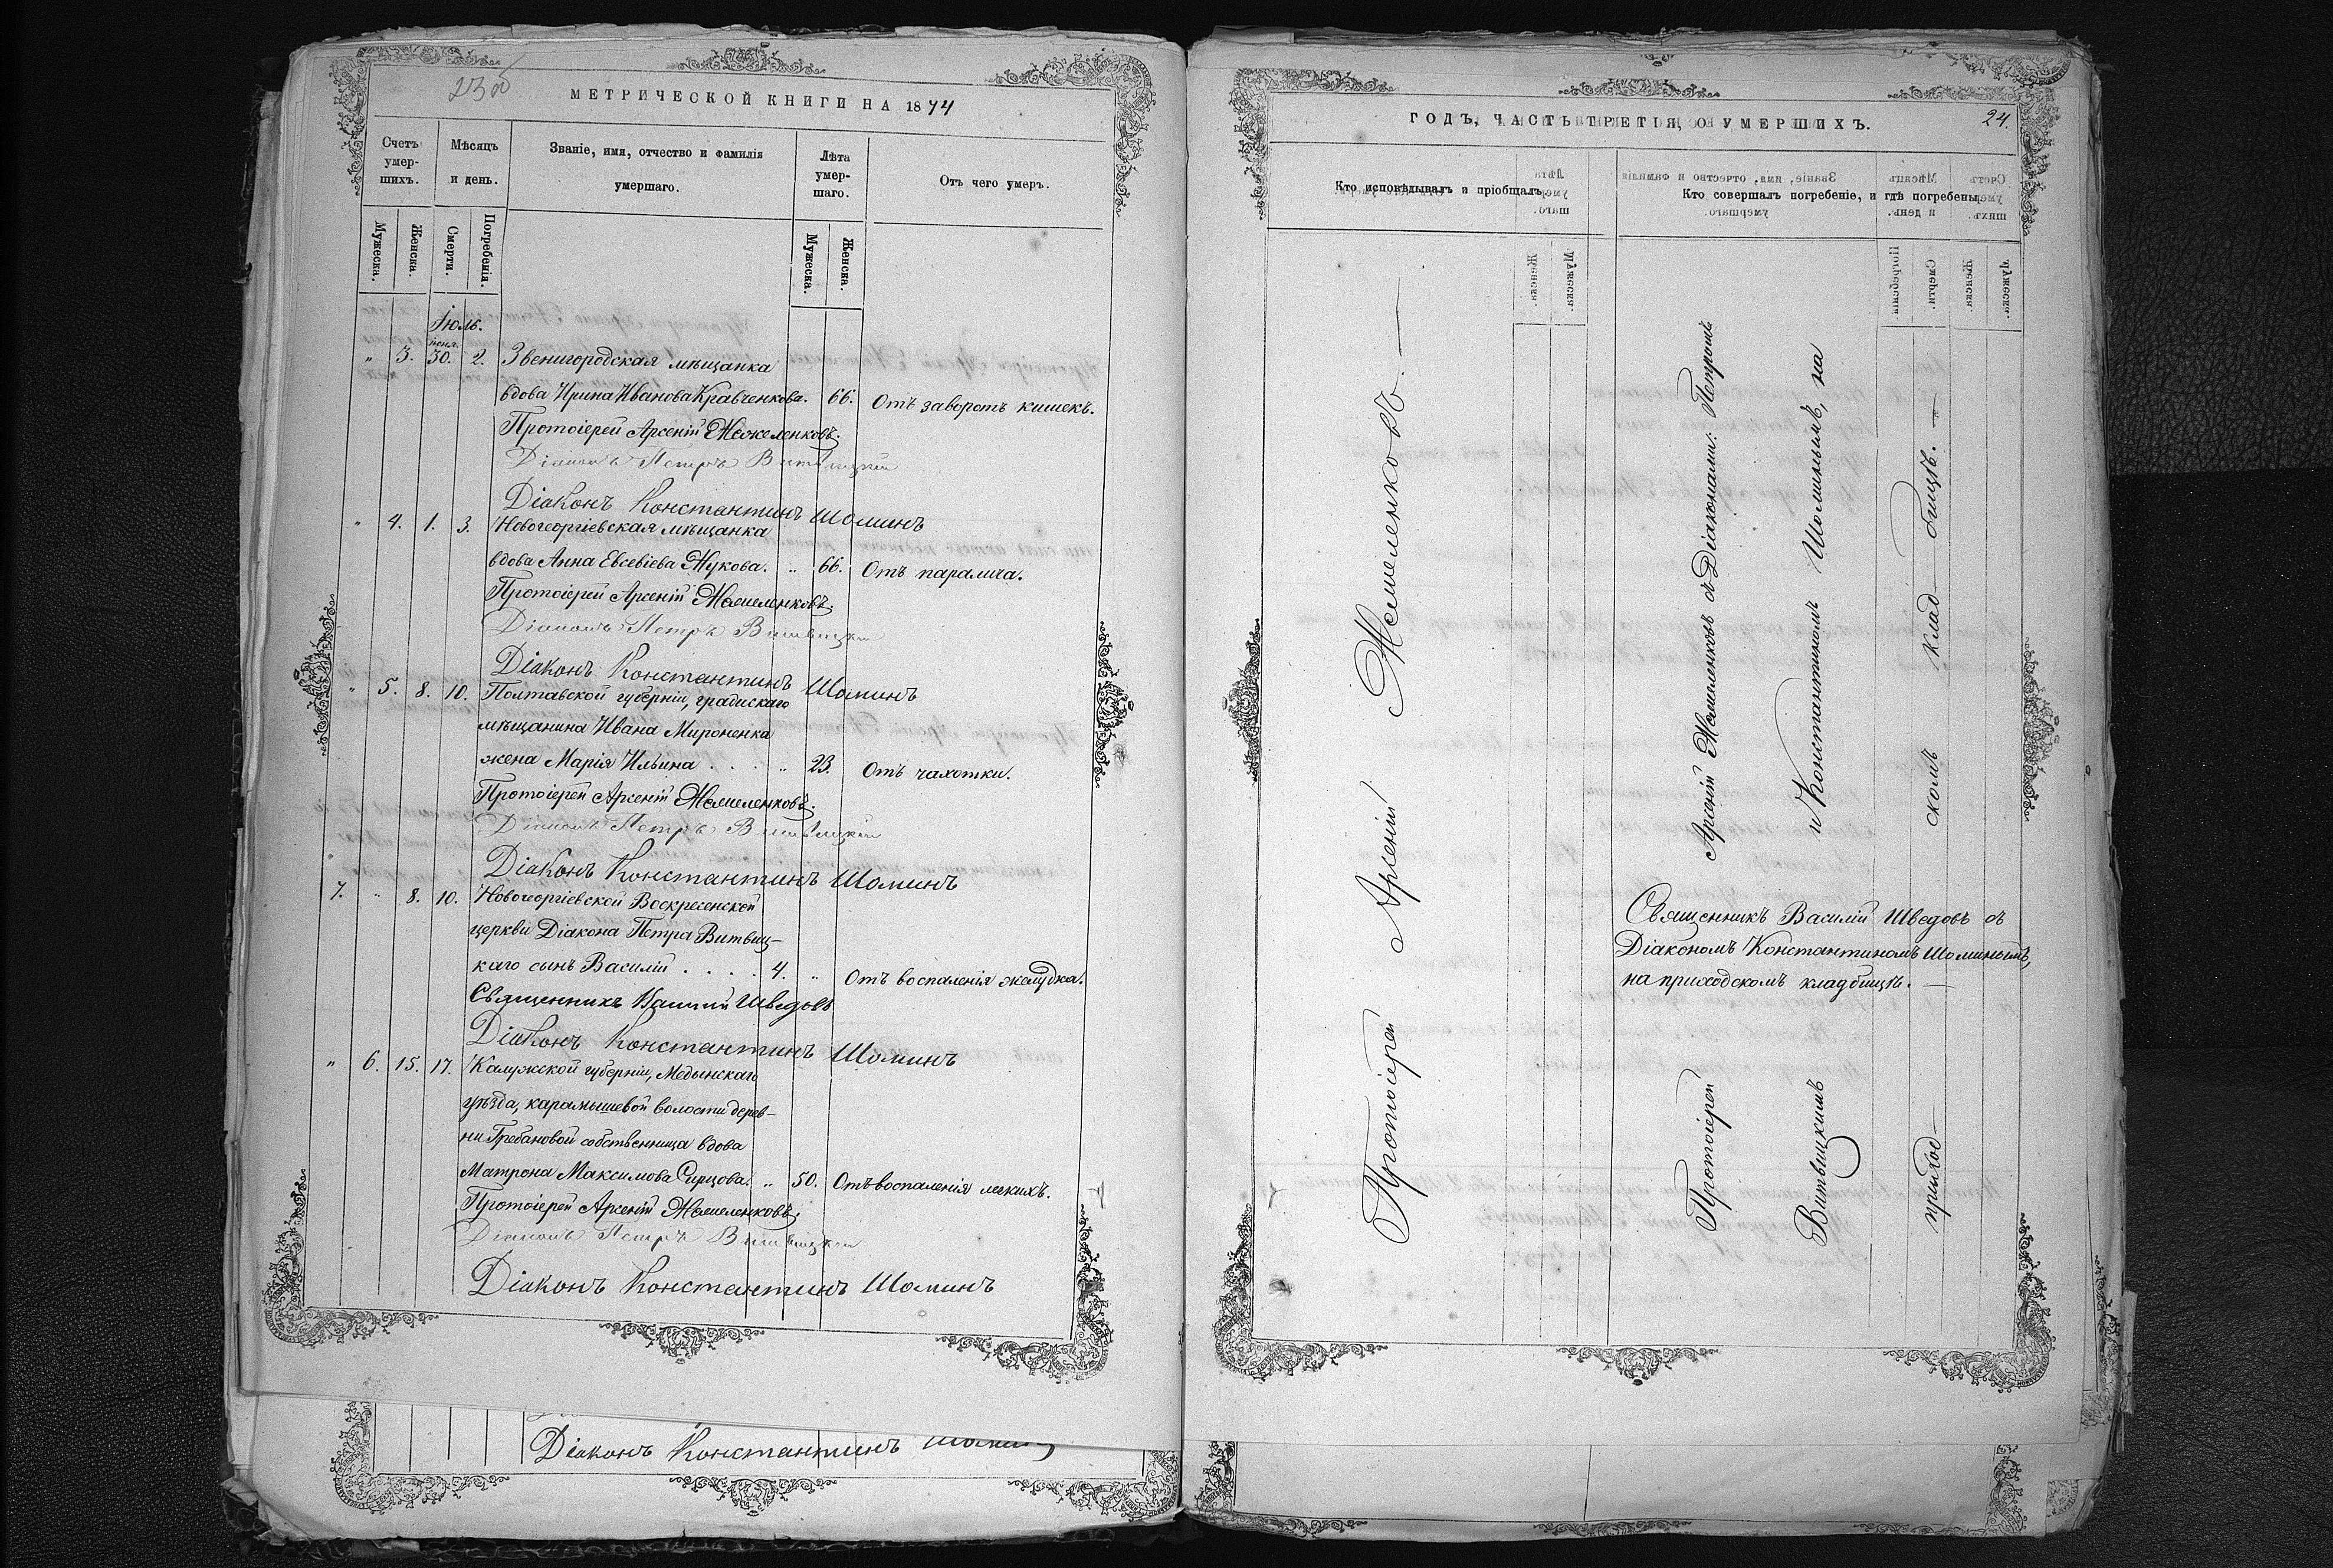 23об
МЕТРИЧЕСКОЙ КНИГИ НА 1874
Счетъ умер-шихъ.
Мѣсяцъ и день.
Званіе, имя, отчество и фамилія умершаго.
Лѣта умер-шаго.
Отъ чего умеръ.
Мужеска.
Женска.
Смерти.
Погребенія.
Мужеска.
Женска.
Іюль.
іюня.
" 3. 30. 2. Звенигородская мѣщанка
вдова Ирина Иванова Кравченкова. 66. Отъ заворотъ кишекъ.
Протоіерей Арсеній Жемеленковъ.
Діаконъ Петръ Витвицкій
Діаконъ Константинъ Шоминъ
" 4. 1. 3. Новогеоргіевская мѣщанка
вдова Анна Евсевіева Жукова. " 66. Отъ паралича.
Протоіерей Арсеній Жемеленковъ.
Діаконъ Петръ Витвицкій
Діаконъ Константинъ Шоминъ
" 5. 8. 10. Полтавской губерніи, градискаго
мѣщанина Ивана Мироненка
жена Марія Ильина . . . " 23. Отъ чахотки.
Протоіерей Арсеній Жемеленковъ.
Діаконъ Петръ Витвицкій
Діаконъ Константинъ Шоминъ
7. " 8. 10. Новогеоргіевской Воскресенской
церкви Діакона Петра Витвиц-
каго сынъ Василій . . . . 4. " Отъ воспаленія желудка.
Священникъ Василій Шведовъ
Діаконъ Константинъ Шоминъ
" 6. 15. 17. Калужской губерніи, Медынскаго
уѣзда, карамышевой волости дерев-
ни Гребановой собственница вдова
Матрона Максимова Сирцова. " 50. Отъ воспаленія легкихъ.
Протоіерей Арсеній Жемеленковъ.
Діаконъ Петръ Витвицкій
Діаконъ Константинъ Шоминъ
Діаконъ Константинъ Шоминъ
ГОДЪ, ЧАСТЬ ТРЕТІЯ, О УМЕРШИХЪ.
24.
Кто исповѣдывалъ и пріобщалъ.
Кто совершалъ погребеніе, и гдѣ погребены.
Протоіерей Арсеній Жемеленковъ. —
Протоіерей Арсеній Жемеленковъ съ Діаконами: Петромъ
Витвицкимъ и Константиномъ Шоминымъ, на
приход- скомъ клад- бищѣ. —
Священникъ Василій Шведовъ съ
Діакономъ Константиномъ Шоминымъ,
на приходскомъ кладбищѣ. —